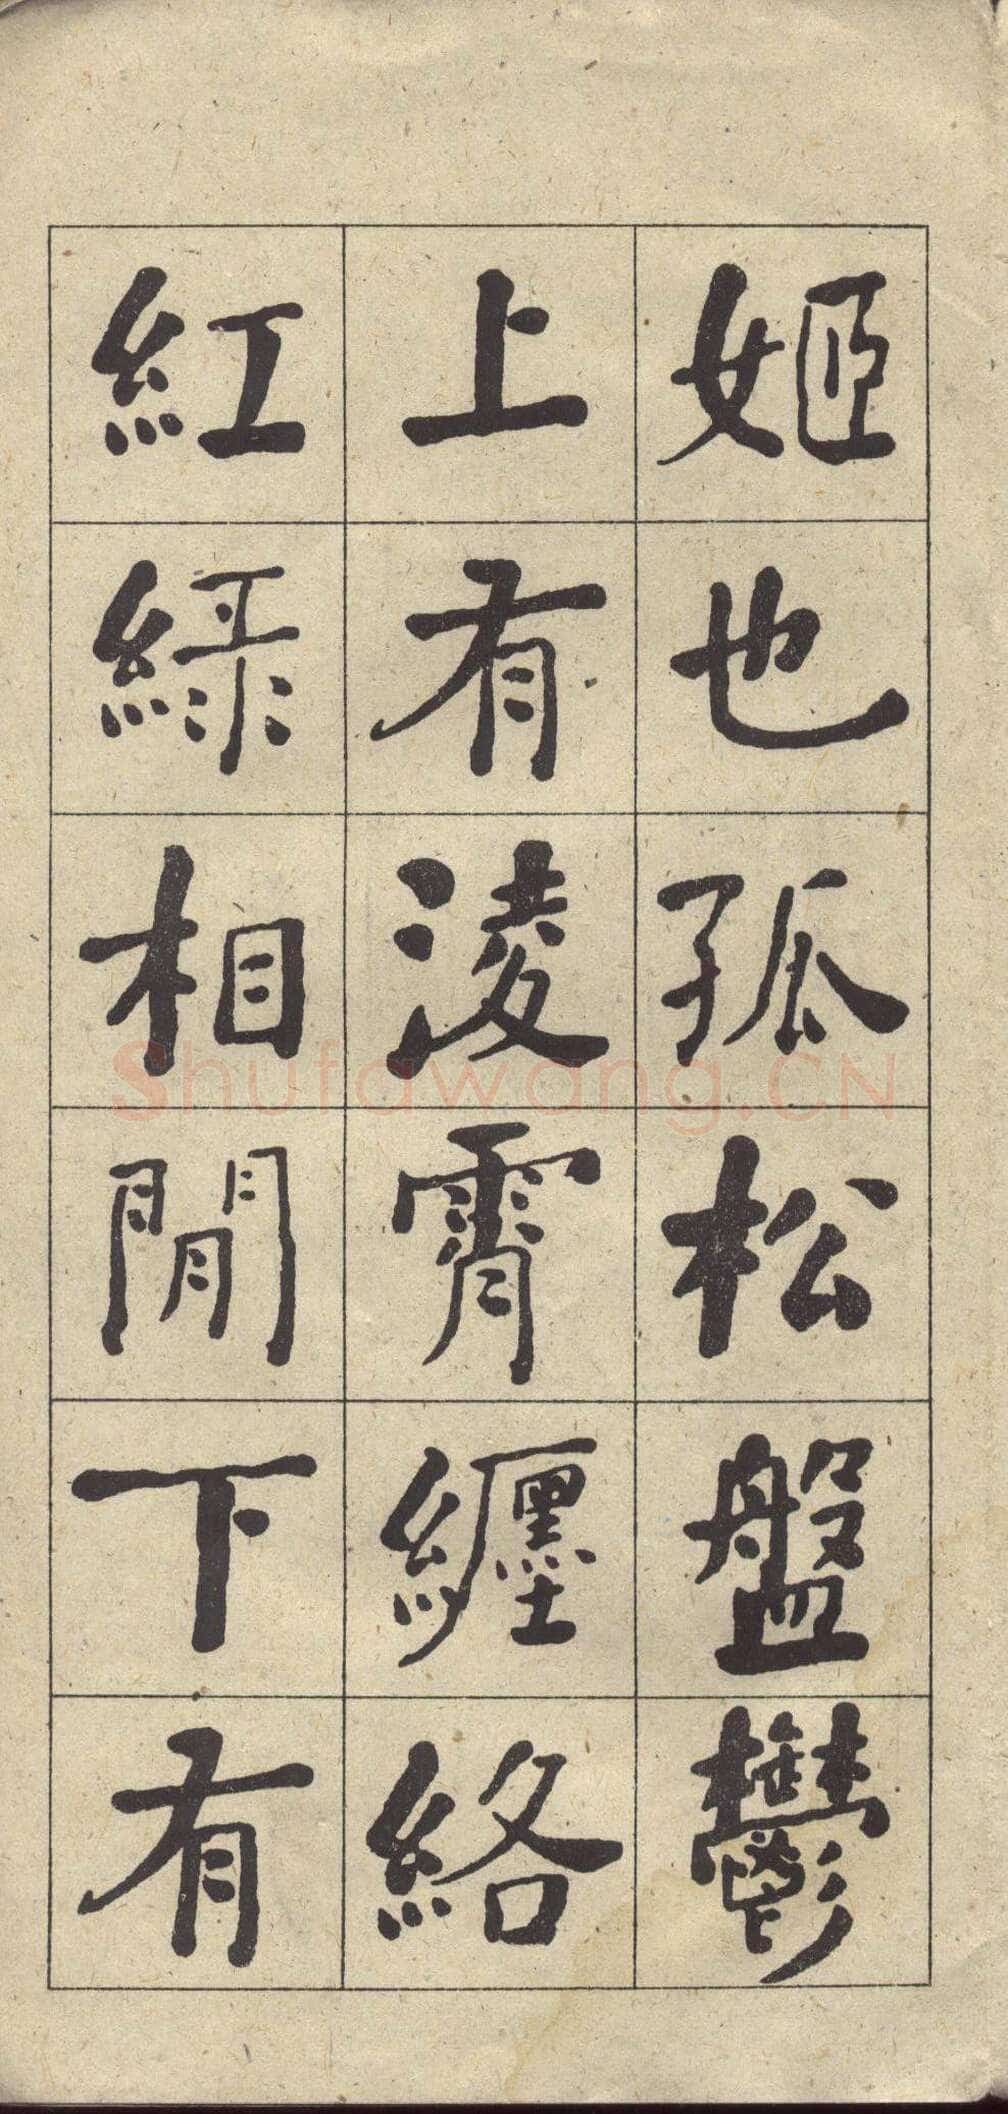 姬也孤松盤鬱
上有淩霄纏絡
紅綠相間下有
Shufawang.CN